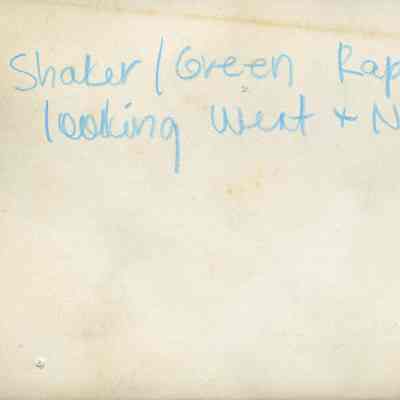 Shaker / Green Rap
looking West + N